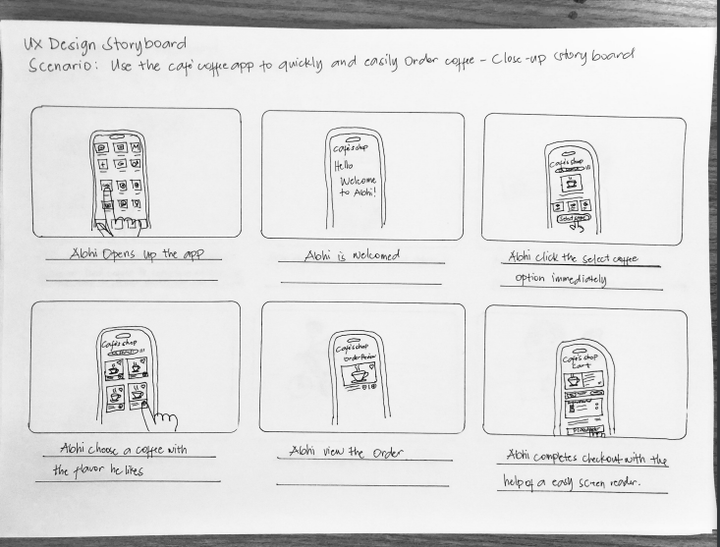 UX Design Storyboard
Scenario: Use the café coffee app to quickly and easily Order coffee - Close-up storyboard
Abhi Opens up the app
Café's shop
Hello
Welcome
to Abhi!
Abhi is welcomed
Café's shop
Abhi click the select coffee
option immediately
Café's shop
Abhi choose a coffee with
the flavor he likes
Café's shop
Order Review
Abhi view the Order
Café's shop
Cart
Abhi completes checkout with the
help of a easy screen reader.